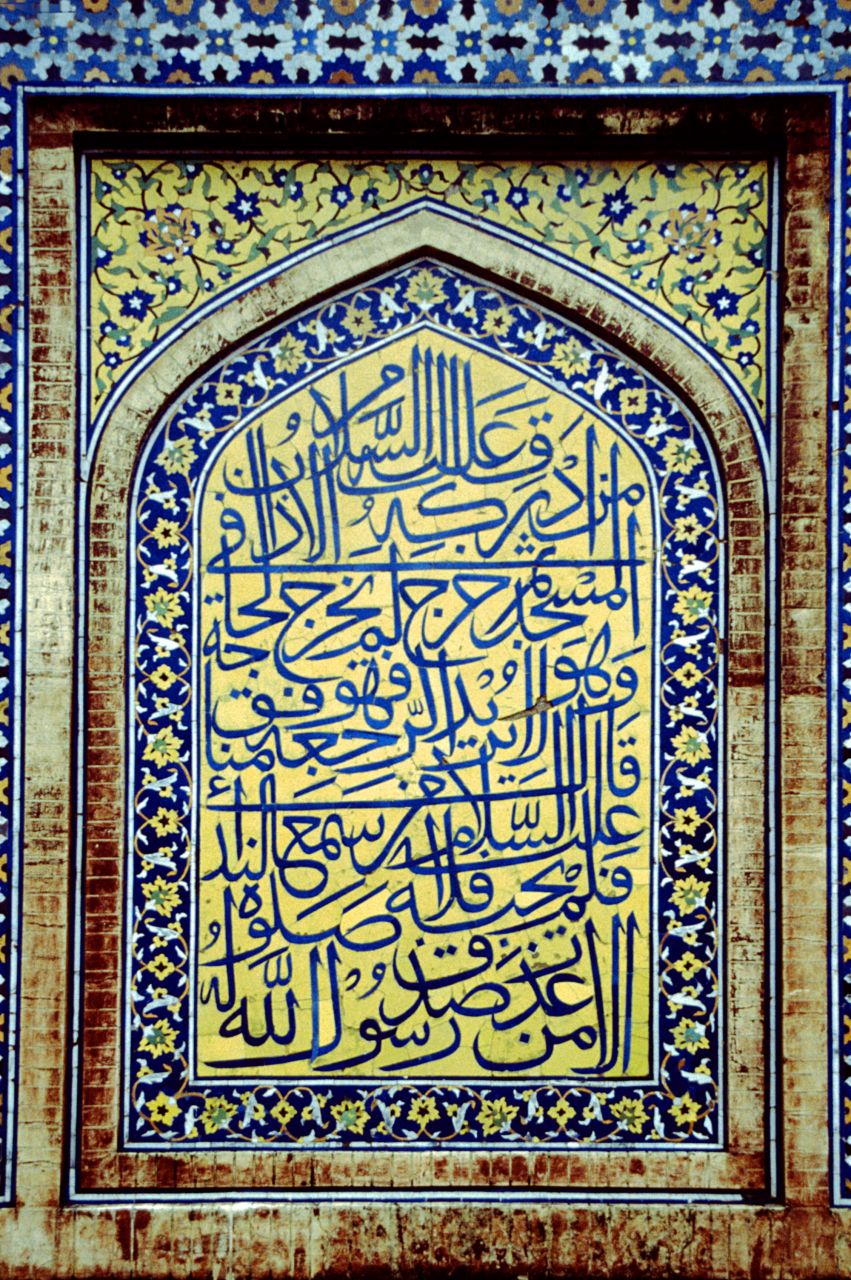 قال عليه السلام من ادركه الاذان في
المسجد ثم خرج لم يخرج لحاجة
وهو لا يريد الرجعة فهو منافق
قال عليه السلام من سمع النداء
فلم يجبه فلا صلوة له
الا من عذر صدق رسول الله